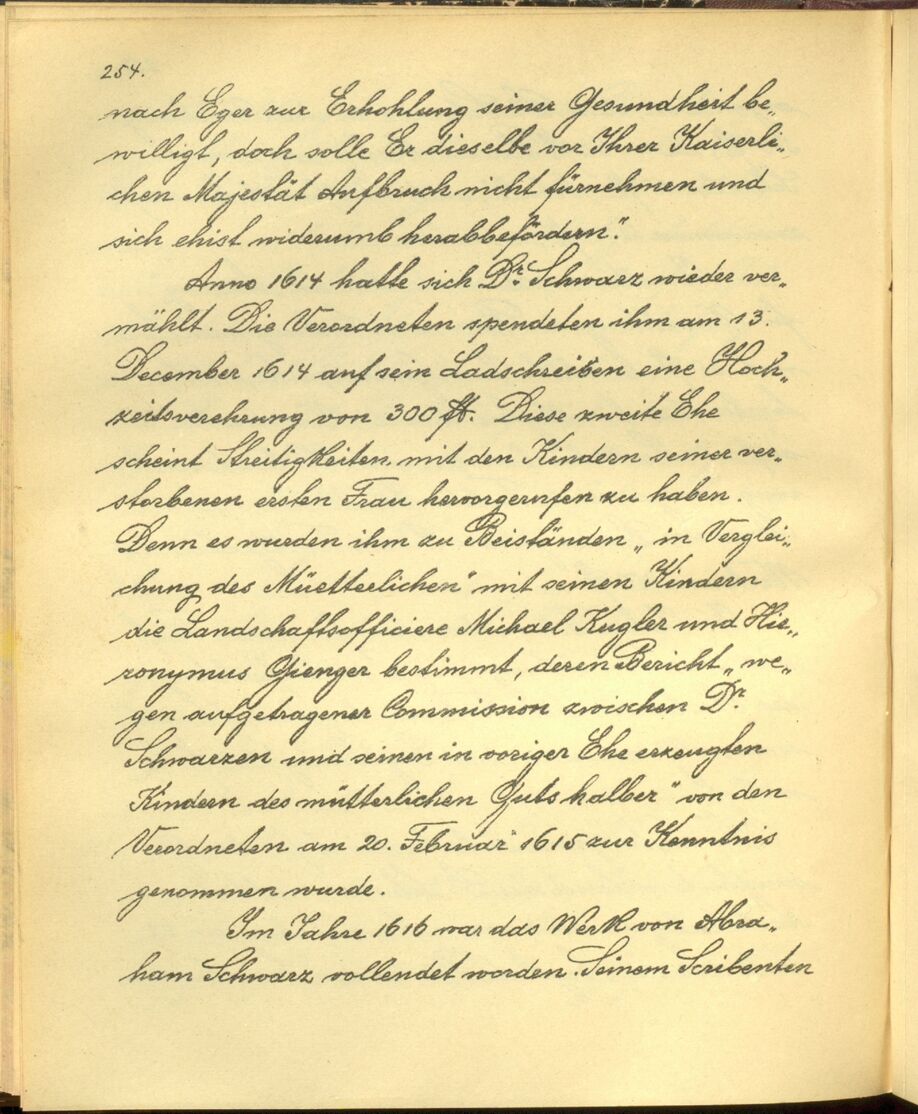 254.
nach Eger zur Erhohlung seiner Gesundheit be„
willigt, doch solle Er dieselbe vor Ihrer Kaiserli„
chen Majestät Aufbruch nicht fürnehmen und
sich ehist widerumb herabbefördern“.
Anno 1614 hatte sich Dr. Schwarz wieder ver„
mählt. Die Verordneten spendeten ihm am 13.
December 1614 auf sein Ladschreiben eine Hoch„
zeitsverehrung von 300 fl. Diese zweite Ehe
scheint Streitigkeiten mit den Kindern seiner ver„
storbenen ersten Frau hervorgerufen zu haben.
Denn es wurden ihm zu Beiständen „in Verglei„
chung des Müetterlichen“ mit seinen Kindern
die Landschaftsofficiere Michael Kugler und Hie„
ronymus Gienger bestimmt, deren Bericht „we„
gen aufgetragener Commission zwischen Dr.
Schwarzen und seinen in voriger Ehe erzeugten
Kindern des mütterlichen Guts halber“ von den
Verordneten am 20. Februar 1615 zur Kenntnis
genommen wurde.
Im Jahre 1616 war das Werk von Abra„
ham Schwarz vollendet worden. Seinem Scribenten